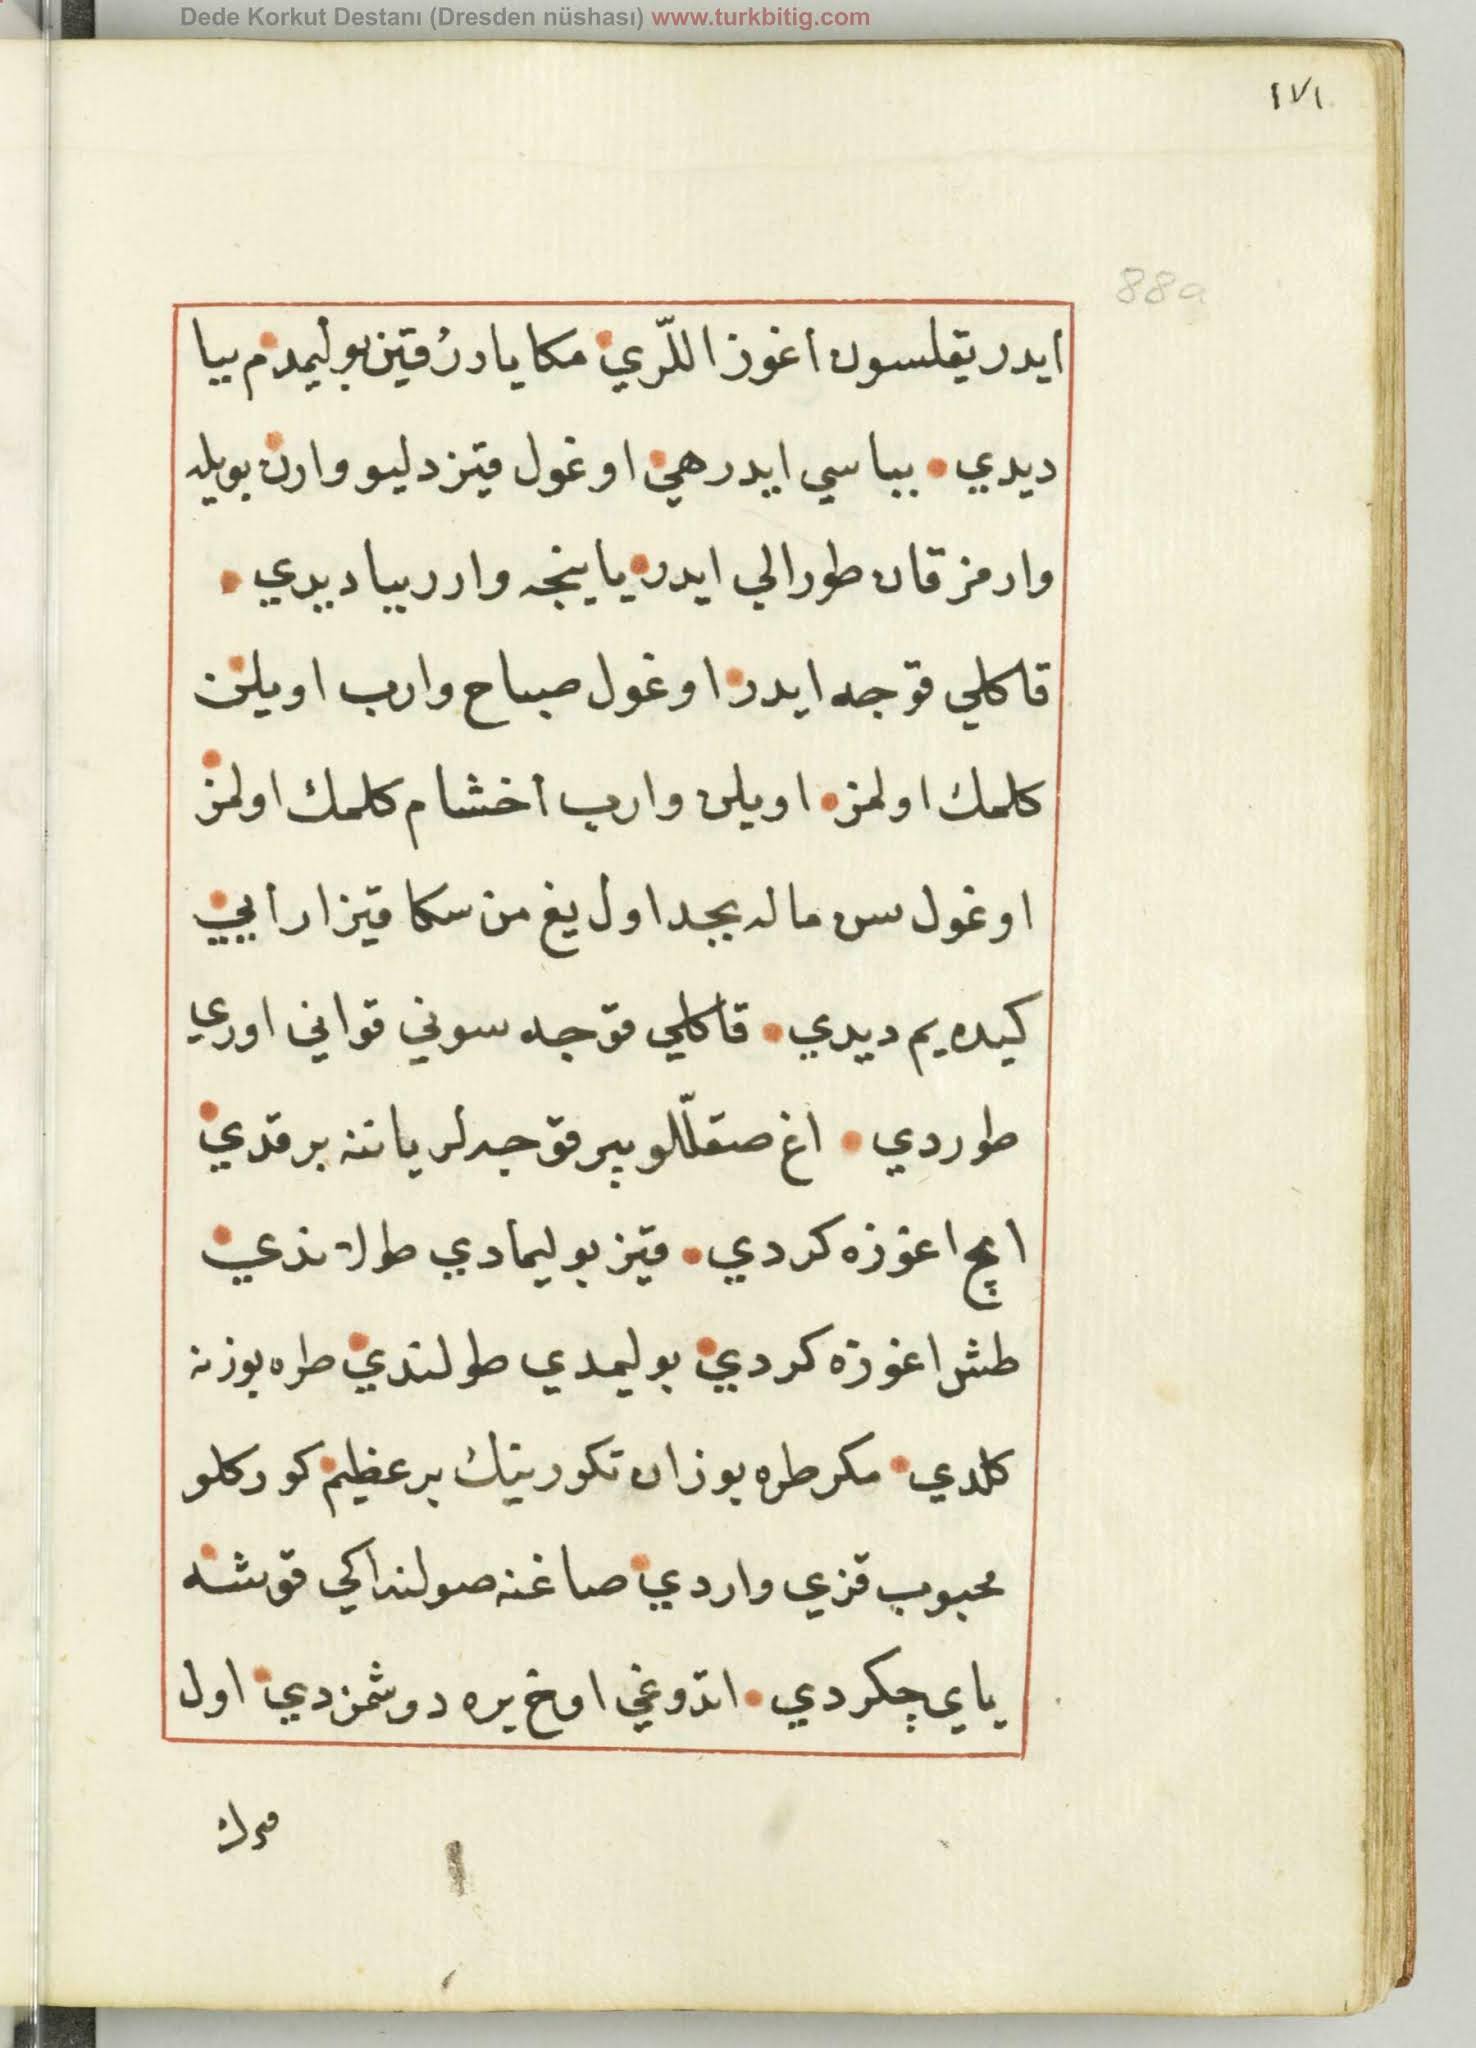 Dede Korkut Destanı (Dresden nüshası) www.turkbitig.com
١٧١
88a
ايدر يقلسون أغوز اللّري مكا يادرُ قيز بوليمدم بيا
ديدي بباسي ايدر هي اوغول قيز دليو وارن بويله
وارمز قان طورالي ايدر يا ينجه وارر بيا ديدي
قاكلي قوجه ايدر اوغول صباح وارب اويلن
كلمك اولمز اويلن وارب أخشام كلمك اولمز
اوغول سن ماله بجد اول يغ من سكا قيز ارايي
كيده يم ديدي قاكلي قوجه سوني قواني اوري
طوردي اغ صقلّلو پير قوجه لر ياننه برقدي
ايچ اغوزه كردي قيز بوليمادي طولندي
طش اغوزه كردي بوليمدي طولندي طره بوزنه
كلدي مكر طره بوزان تكورينك بر عظيم كوركلو
محبوب قزي واردي صاغنه صولنداكي قوشه
ياي چكردي اتدوغي اوخ يره دوشمزدي اول